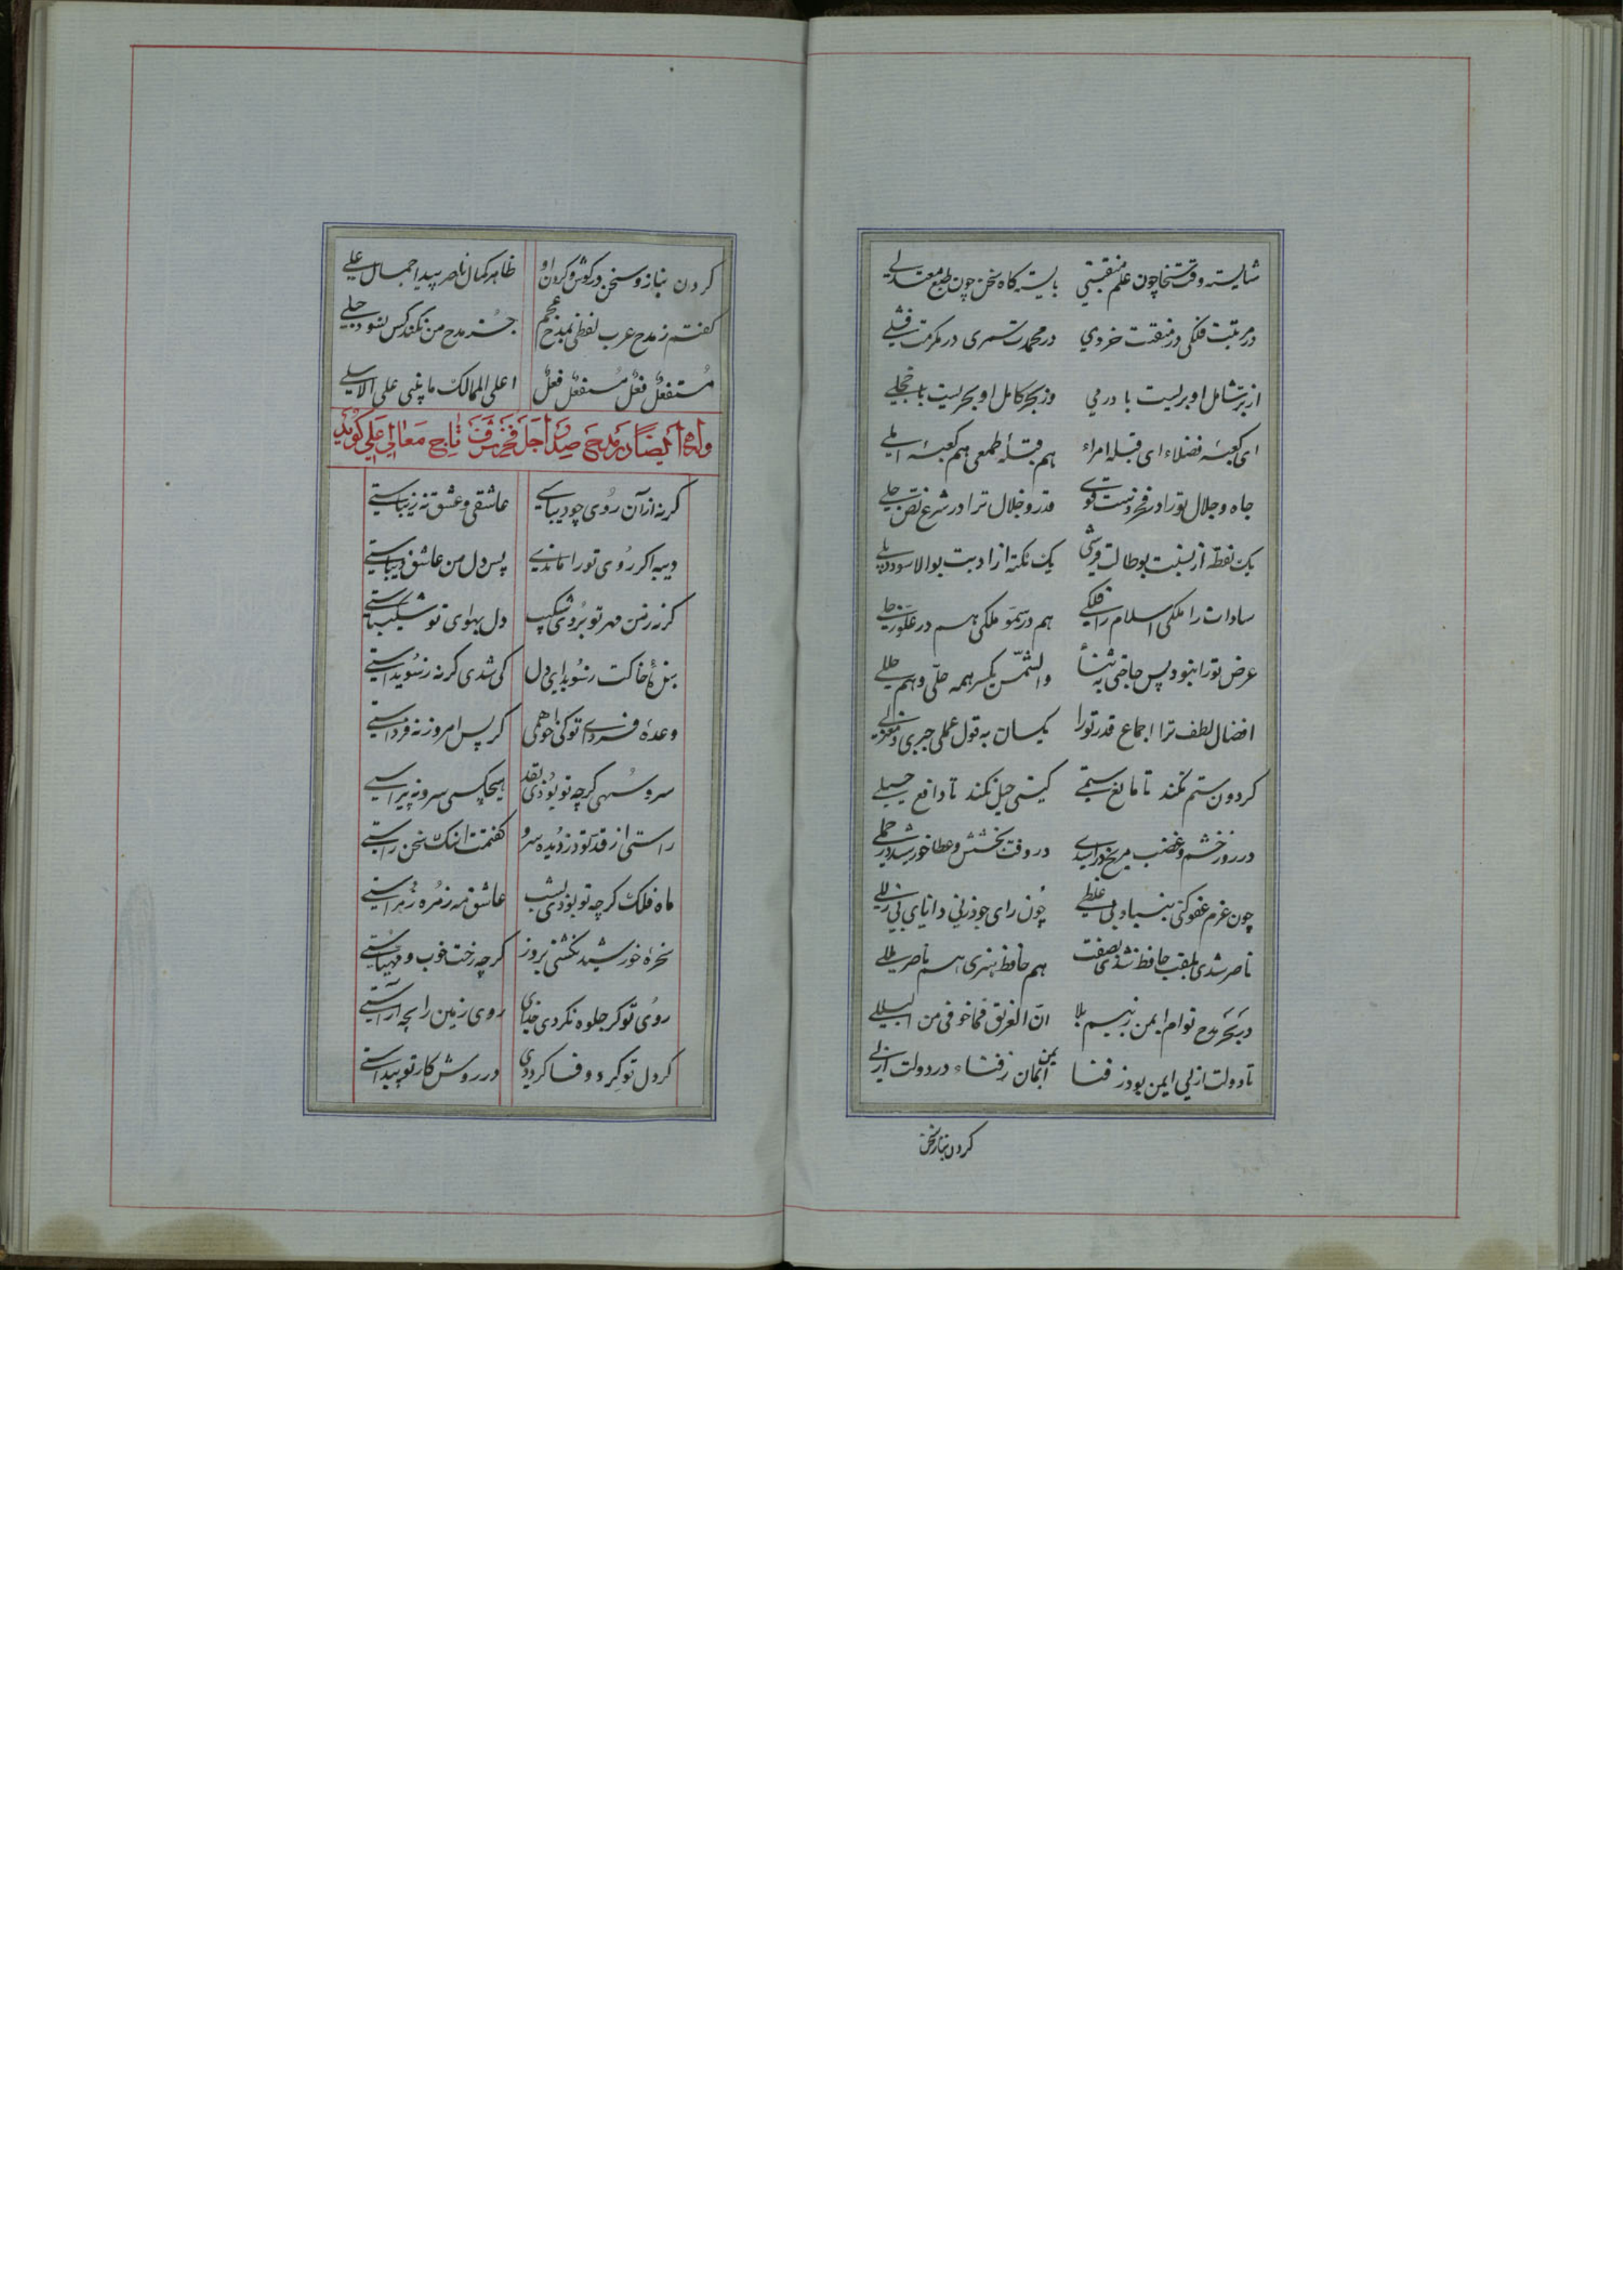 شایسته وقت سخا چون علم منقبتی بایسته گاه سخن چون طبع معتدلی
در مرتبت فلکی در منقبت خردی در محمدت سمری در مکرمت مثلی
از بر شامل او بریست با درمی وز بحر کامل او بحریست با خجلی
ای کعبهٔ فضلاء ای قبله امراء هم قبلهٔ طمعی هم کعبهٔ املی
جاه و جلال تو را در فخر دست قوی قدر و جلال ترا در شرع نص جلی
یک نقطه از نسبت بوطالب قرشی یک نکته از ادبت بوالاسود دیلی
سادات را ملکی اسلام را فلکی هم در سمو ملکی هم در علو زحلی
عرض تو را نبود پس حاجتی به ثنا والشمس یکسر همه حلی و هم حللی
افضال لطف ترا اجماع قدر تو را یکسان به قول عملی جبری و معتزلی
کردون ستم نکند تا مانع ستمی کیتی حیل نکند تا دافع حیلی
در روز خشم و غضب مریخ در اسدی در وقت بخشش و عطا خورشید در حملی
چون عزم عفو کنی بنیاد بی غلطی چون رای جود زنی دانای بی زللی
ناصر شدی بلقب حافظ شدی بصفت هم حافظ هنری هم ناصر مللی
در بحر مدح توام ایمن ز بیم بلا ان الغریق فما خوفی من البللی
تا دولت ازلی ایمن بود ز فنا ایمن بمان ز فناء در دولت ازلی
کردن بناز و سخن
کردن بناز و سخن در کوش و کردن او ظاهر کمال ناصر پیدا جمال علی
کفتم ز مدح عرب لفظی بمدح عجم جز مدح من نکند کس بشنود جلی
مستفعلن فعلن مستفعلن فعلن اعلی الممالک ما یبنی علی الاسلی
وله ایضا در مدح صدر اجل فخر شرف تاج معالی علی گوید
کر نه از آن روی چو دیباستی عاشقی و عشق نه زیباستی
دیبه اکر روی تو را ماندی پس دل من عاشق دیباستی
کر نه ز من مهر تو بردی شکیب دل بهوای تو شکیباستی
بندهٔ خاکت ز سویدای دل کی شدی کر نه ز سویداستی
وعدهٔ فردای تو کی خواهمی کر پس امروز نه فرداستی
سرو سهی کرچه تو بودی بقد هیچکسی سرو نه پیراستی
راستی از قد تو دزدیده سرو کفتمت اینک سخن راستی
ماه فلک کرچه تو بودی بشب عاشق مه زمره زهراستی
سخرهٔ خورشید نکشتی بروز کرچه رخت خوب و مهیاستی
روی تو کر جلوه نکردی خدای روی زمین را بچه آراستی
کر دل تو کرد وفا کرددی در روش کار تو پیداستی